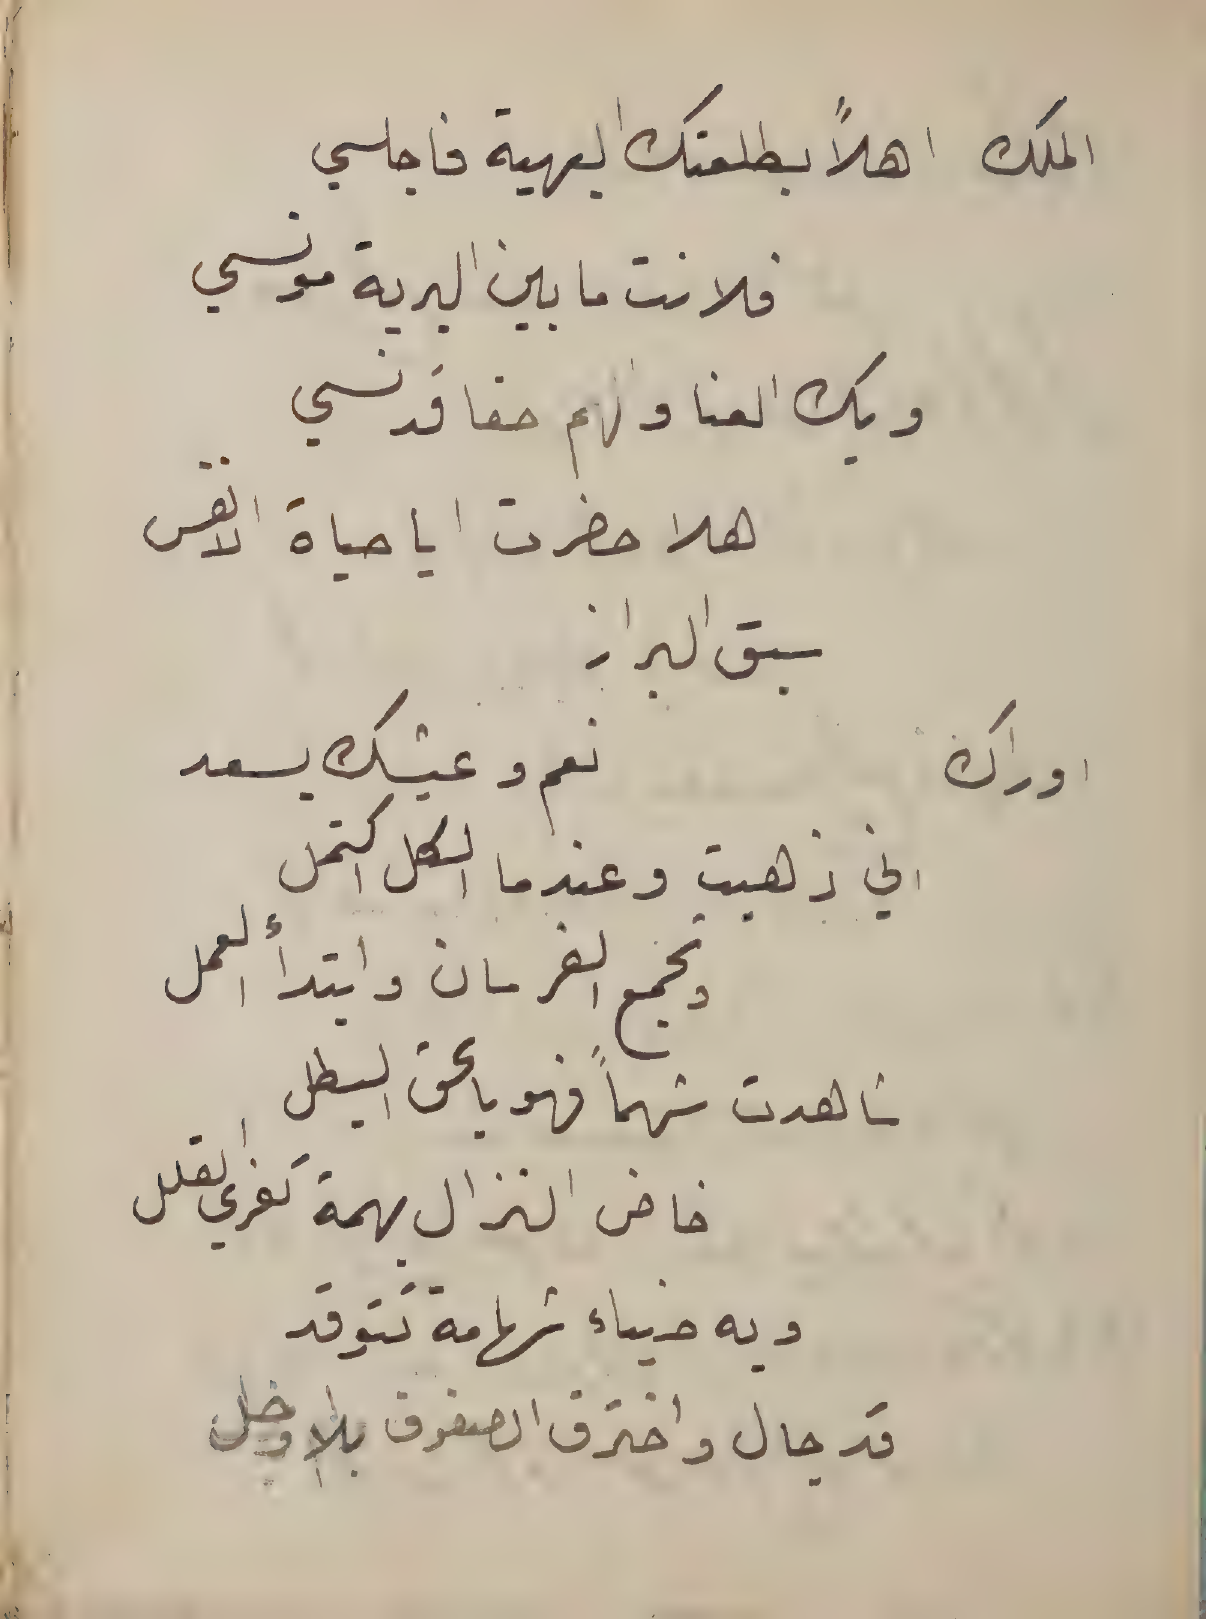 الملك اهلاً بطلعتك البهية فاجلسي
فلانت ما بين البرية مونسي
وبك العنا والهم حقا قد نسي
هلا حضرت ايا حياة الانفس
سبق البراز
اوراك نعم وعيشك يسعد
اني ذهبت وعندما الكل اكتمل
وتجمع الفرسان وابتدأ العمل
شاهدت شهماً فهو بالحق البطل
خاض النزال بهمة تفري القلل
وبه ضياء شهامة تتوقد
قد جال واخترق الصفوف بلا وجل